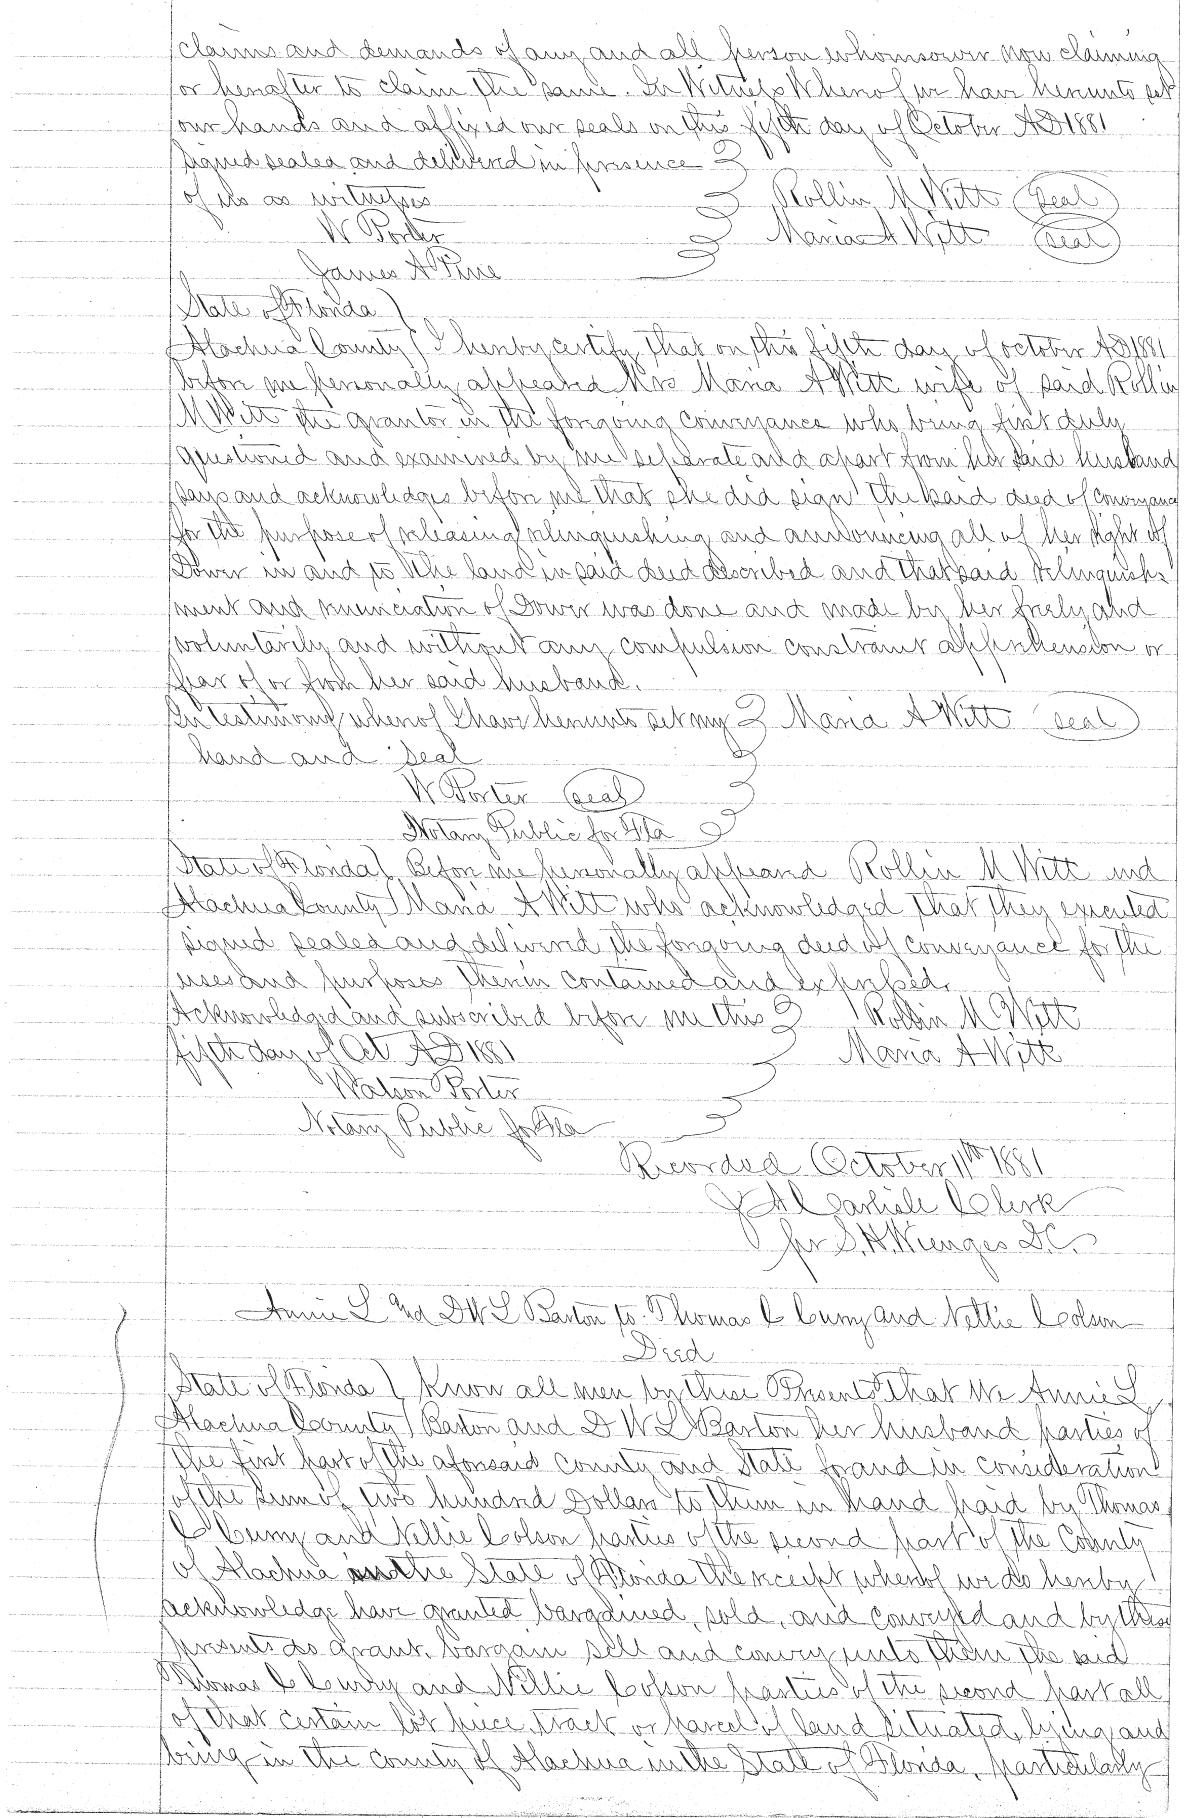 claims and demands of any and all person whomsoever now claiming
or hereafter to claim the same. In Witness Whereof we have hereunto set
our hands and affixed our seals on this fifth day of October AD 1881
Signed sealed and delivered in presence
of us as witnesses
Rollin M Witt (seal)
W Porter
Maria A Witt (seal)
James A Pine
State of Florida
Alachua County I hereby certify that on this fifth day of october AD 1881
before me personally appeared Mrs Maria A Witt wife of said Rollin
M Witt the grantor in the foregoing conveyance who being first duly
questioned and examined by me separate and apart from her said husband
says and acknowledges before me that she did sign the said deed of conveyance
for the purpose of releasing relinquishing and announcing all of her right of
Dower in and to the land in said deed described and that said relinquish-
ment and renunciation of Dower was done and made by her freely and
voluntarily and without any compulsion constraint apprehension or
fear of or from her said husband.
In testimony whereof I have hereunto set my Maria A Witt (seal)
hand and seal
W Porter (seal)
Notary Public for Fla
State of Florida Before me personally appeared Rollin M Witt and
Alachua County Maria A Witt who acknowledged that they executed
signed sealed and delivered the forgoing deed of conveyance for the
uses and purposes therein contained and expressed.
Acknowledged and subscribed before me this Rollin M Witt
fifth day of Oct AD 1881 Maria A Witt
Watson Porter
Notary Public for Fla
Recorded October 11th 1881
J A Carlisle Clerk
per S. H. Wienges D.C.
Annie L and D W L Barton to Thomas C Curry and Nettie Colson
Deed
State of Florida Know all men by these Presents That We Annie L
Alachua County Barton and D W L Barton her husband parties of
the first part of the aforesaid County and State for and in consideration
of the sum of two hundred Dollars to them in hand paid by Thomas
C Curry and Nellie Colson parties of the second part of the County
of Alachua in the State of Florida the receipt whereof we do hereby
acknowledge have granted, bargained, sold, and conveyed and by these
presents do grant, bargain sell and convey unto them the said
Thomas C Curry and Nellie Colson parties of the second part all
of that certain lot piece, tract or parcel of land situated, lying and
being in the county of Alachua in the State of Florida, particularly